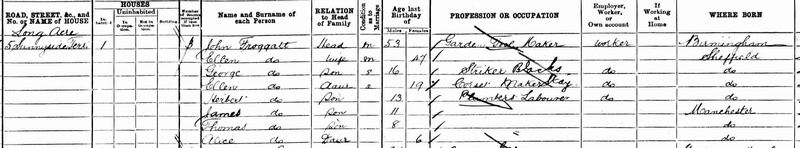 ROAD, STREET, &c., and No. or NAME of HOUSE HOUSES Inhabited Uninhabited In Occupation. Not in Occupation. Building Name and Surname of each Person RELATION to Head of Family Condition as to Marriage Age last Birthday of Males Females PROFESSION OR OCCUPATION Employer, Worker, or Own account If Working at Home WHERE BORN
Long Acre
5 Sunnyside Terr. 1 John Froggatt Head M 53 Garden Tool Maker Worker Birmingham
Ellen do Wife M 47 Sheffield
George do Son S 16 Striker Blacks do do
Ellen do Daur S 19 Corset Maker Stay do do
Herbert do Son 13 Plumbers Labourer do do
James do Son 11 Manchester
Thomas do Son 8 do
Alice do Daur 6 do